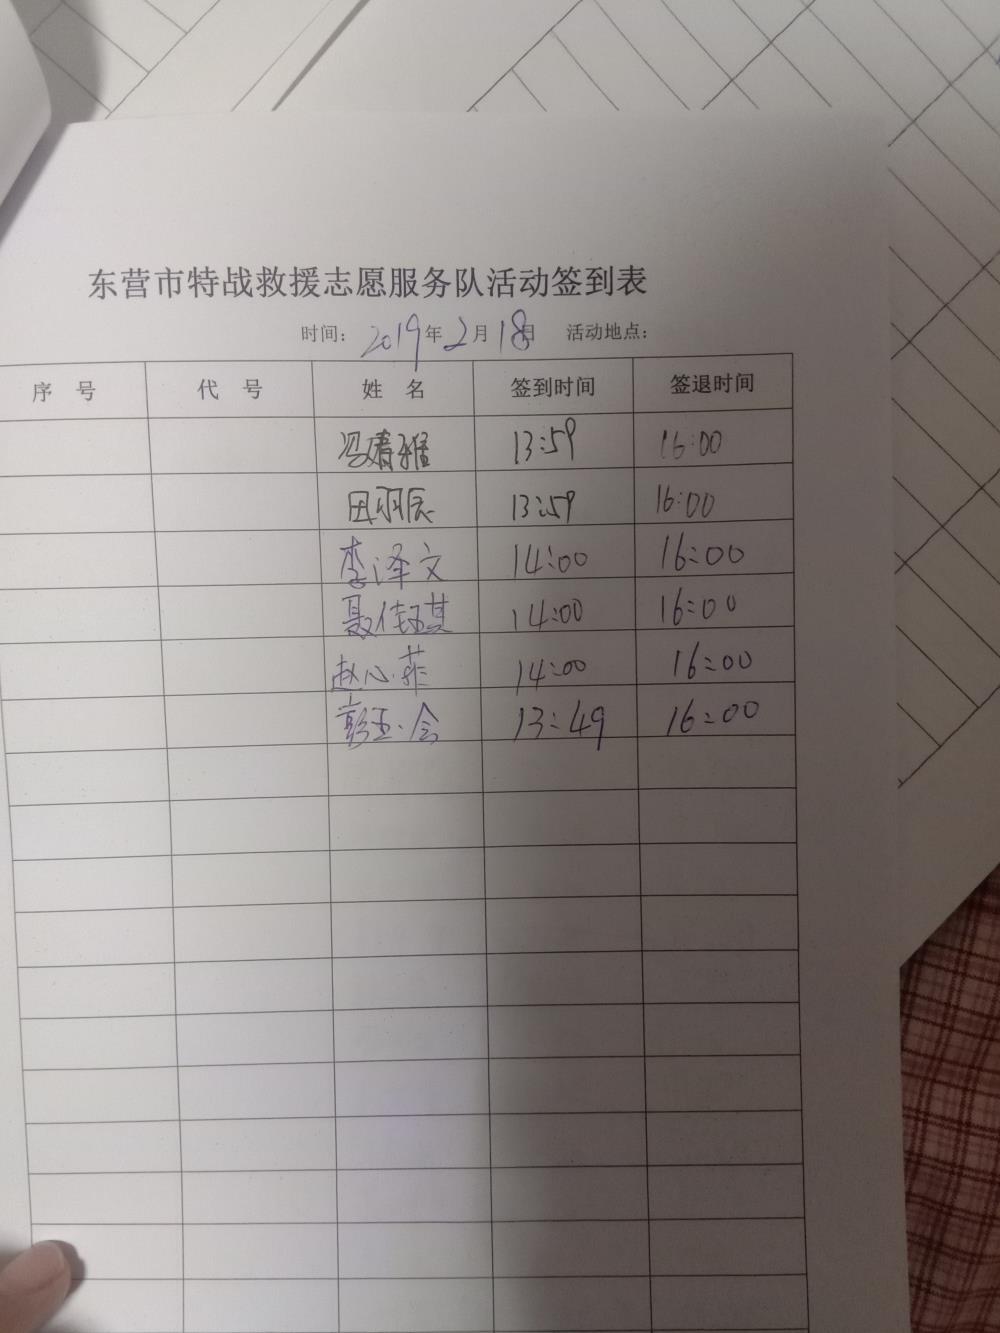 东营市特战救援志愿服务队活动签到表
时间： 2019年2月18日 活动地点：
序 号 代 号 姓 名 签到时间 签退时间
冯婧雅 13:59 16:00
田羽辰 13:59 16:00
李泽文 14:00 16:00
聂佳琪 14:00 16:00
赵心菲 14:00 16:00
彭玉会 13:49 16:00